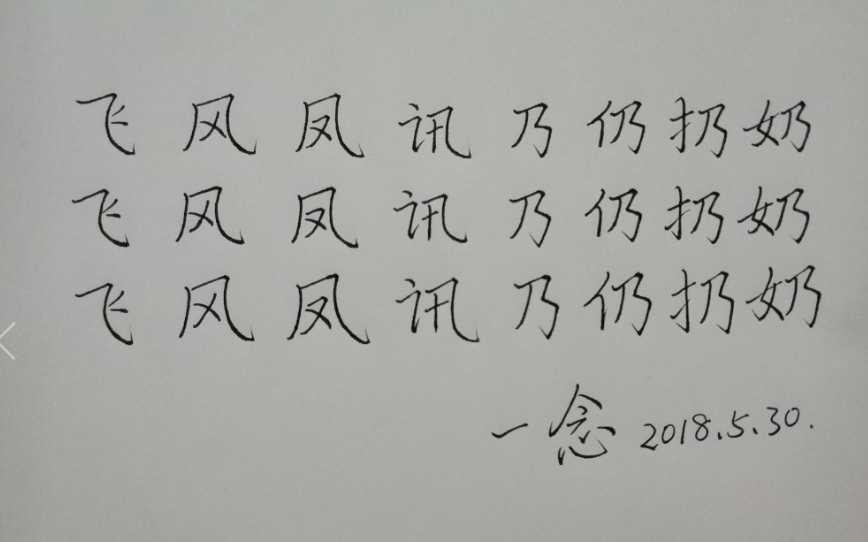 飞 风 凤 讯 乃 仍 扔 奶
飞 风 凤 讯 乃 仍 扔 奶
飞 风 凤 讯 乃 仍 扔 奶
一念 2018.5.30.